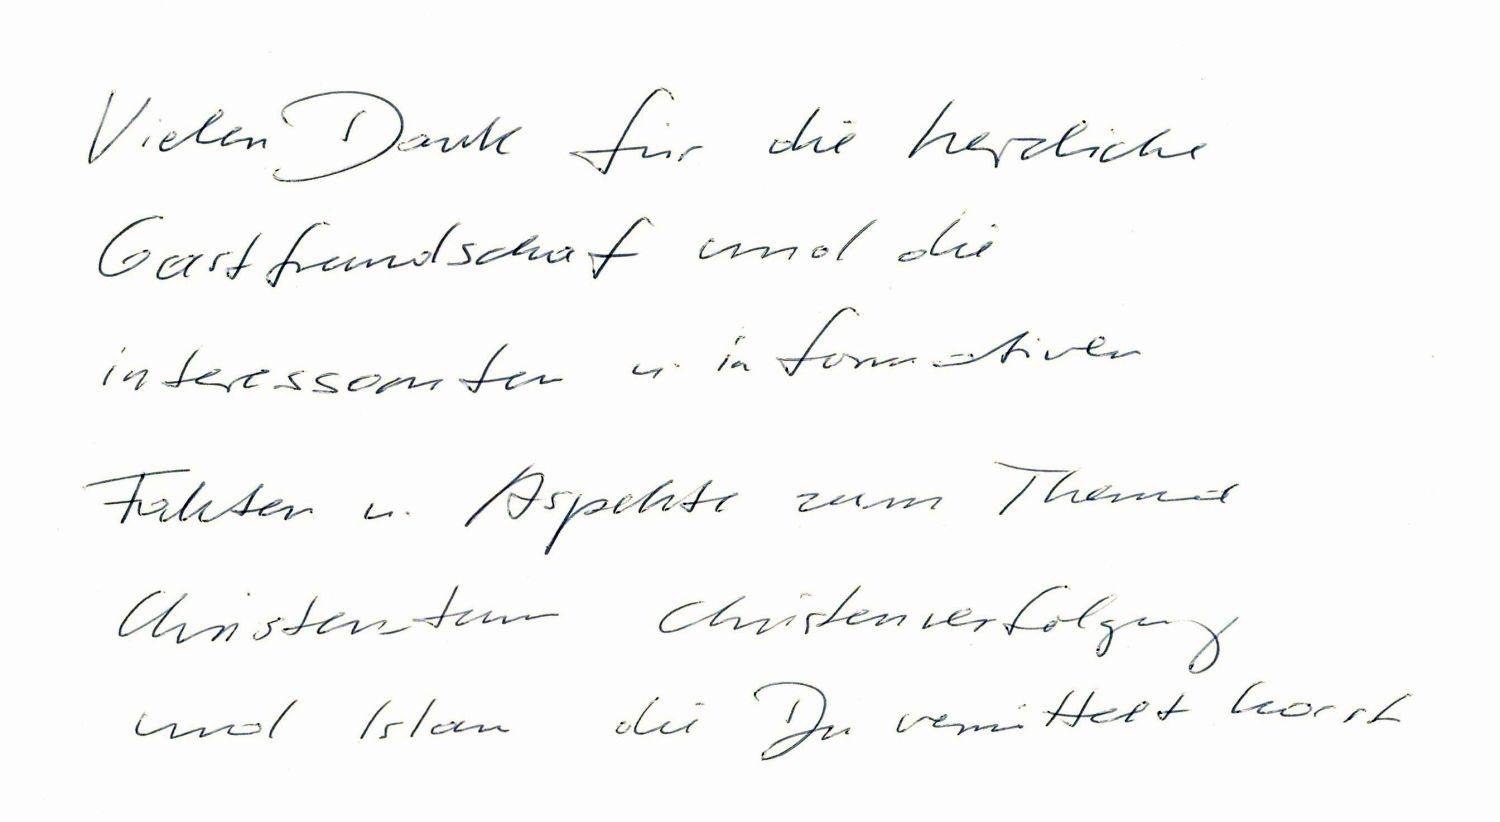 Vielen Dank für die herzliche
Gastfreundschaft und die
interessanten u. informativen
Fakten u. Aspekte zum Thema
Christentum Christenverfolgung
und Islam die Du vermittelt hast